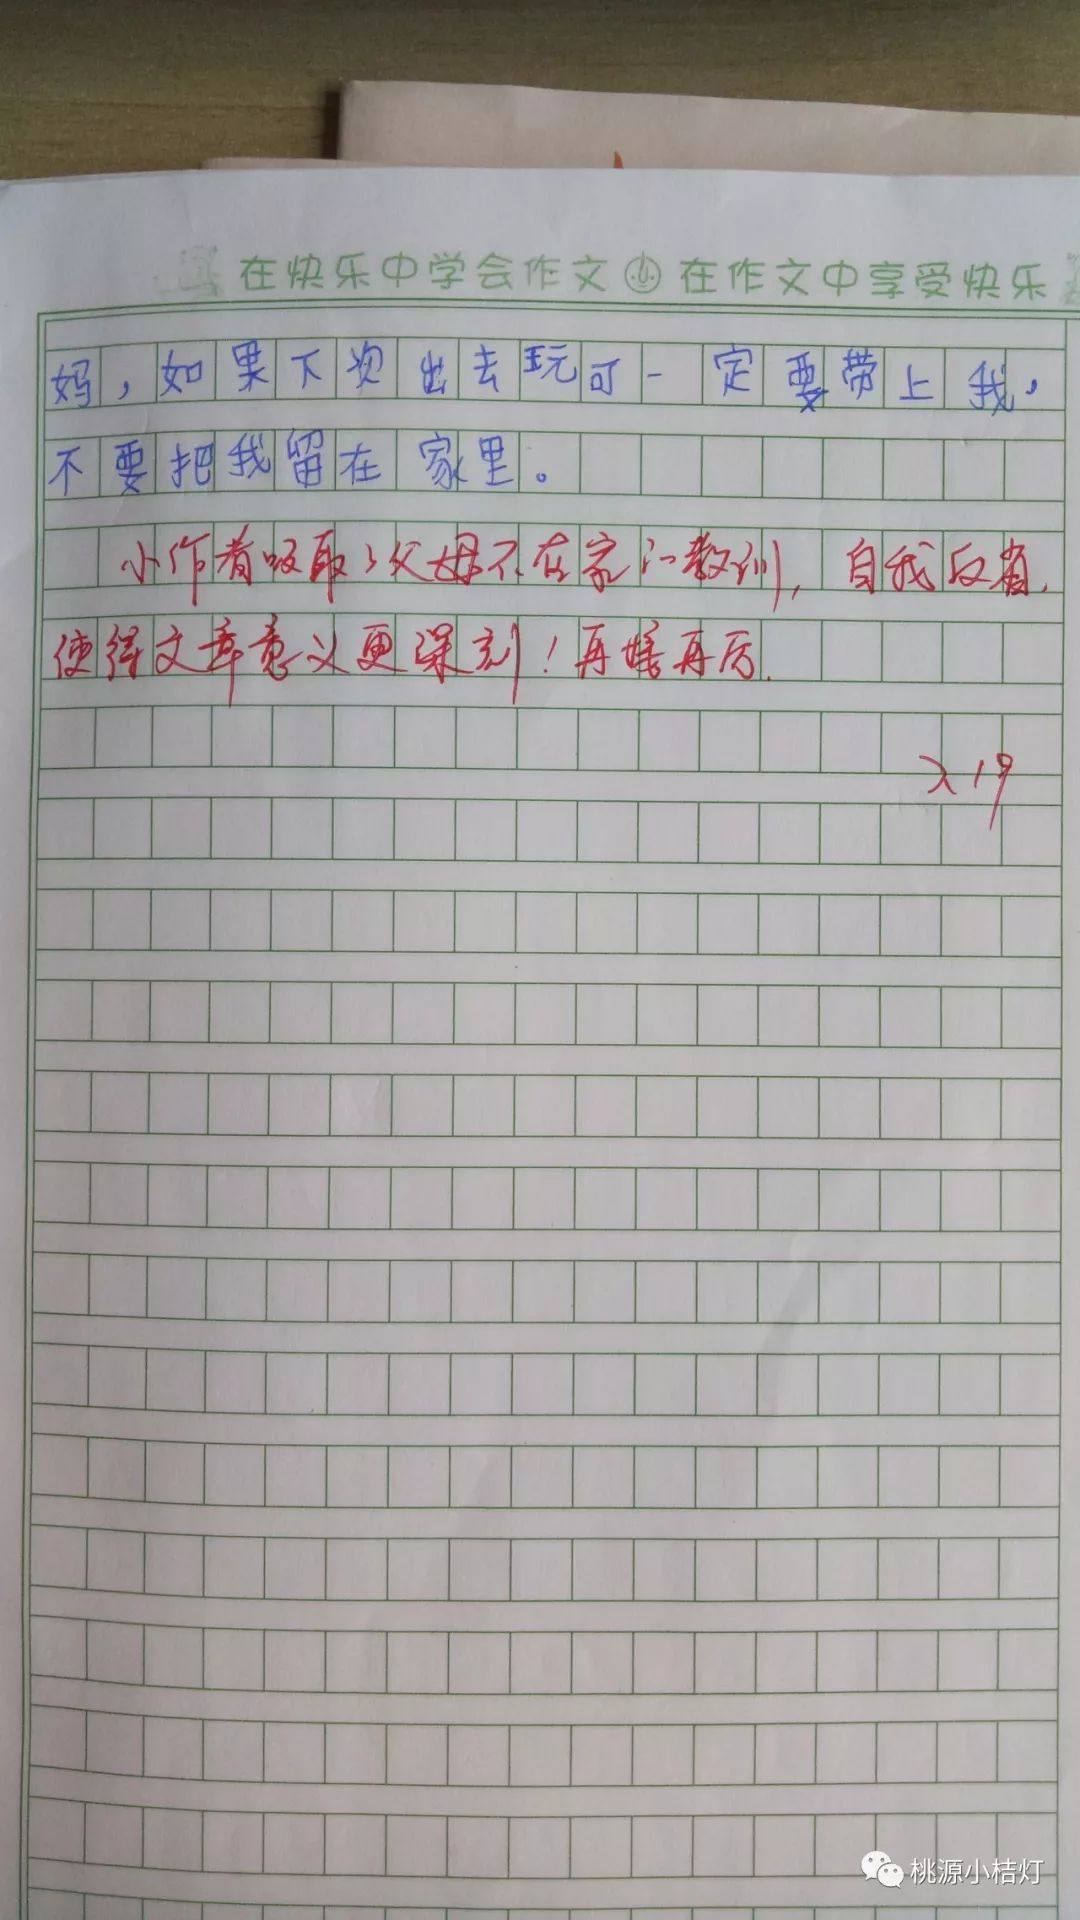 在快乐中学会作文 在作文中享受快乐
妈，如果下次出去玩可一定要带上我，
不要把我留在家里。
小作者吸取了父母不在家的教训，自我反省，
使得文章意义更深刻！再接再厉.
桃源小桔灯